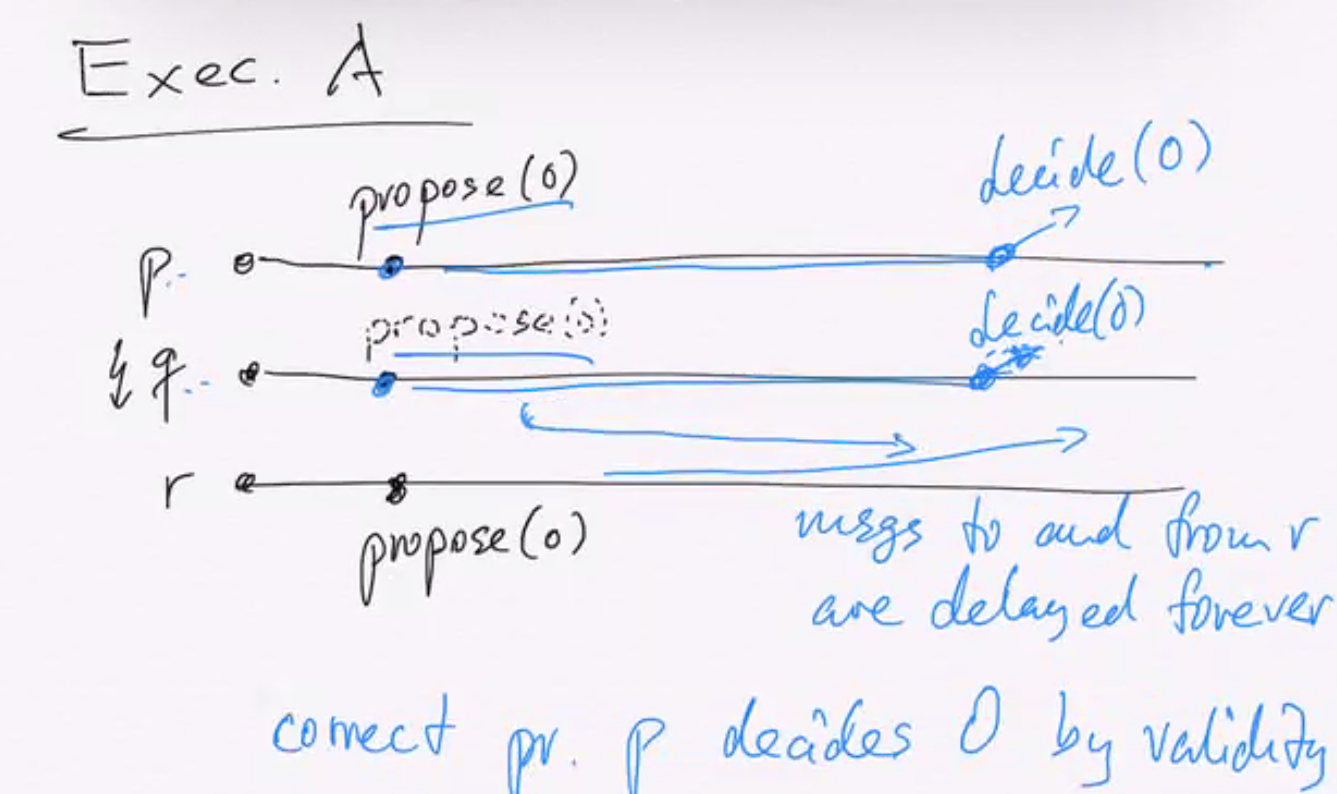 Exec. A
propose(0) decide(0)
p.
propose(0) decide(0)
q.
r
propose(0)
msgs to and from r
are delayed forever
correct pr. p decides 0 by validity